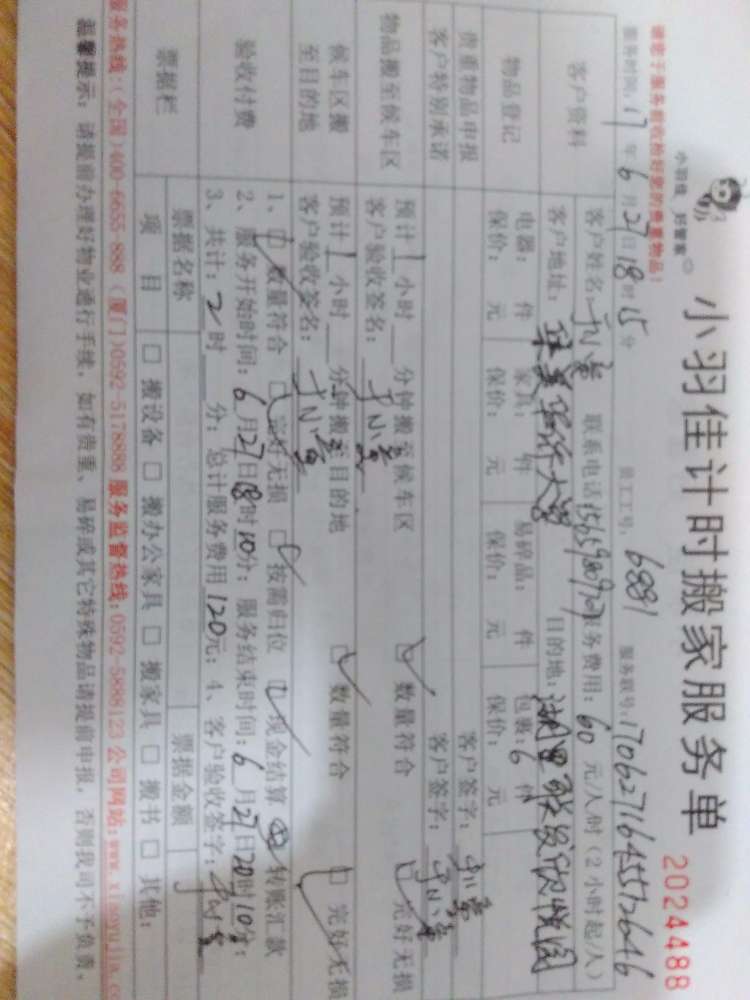 小羽佳 好管家
小羽佳计时搬家服务单
2024488
请您于服务前收拾好您的贵重物品！
服务时间：17年6月27日18时15分 员工工号：6881 服务联号：
客户资料
客户姓名： 联系电话 服务费用：60元/人.时（2小时起/人）
客户地址： 目的地：
物品登记
电器： 件 家具： 件 易碎品： 件 包裹：6件
保价： 元 保价： 元 保价： 元 保价： 元
贵重物品申报 客户签字：
客户特别承诺 客户签字：
物品搬至候车区
预计1小时 分钟搬至候车区 数量符合 完好无损
客户验收签名：
候车区搬至目的地
预计1小时 分钟搬至目的地 数量符合 完好无损
客户验收签名：
验收付费
1、 数量符合 完好无损 按需归位 现金结算 转账汇款
2、服务开始时间：6月27日18时10分；服务结束时间：6月27日20时10分；
3、共计：2时 分；总计服务费用120元；4、客户验收签字：
票据栏
票据名称 票据金额
项 目 □ 搬设备 □ 搬办公家具 □ 搬家具 □ 搬书 □ 其他：
服务热线：（全国）400-6655-888（厦门）0592-5178888 服务监督热线：0592-5888123 公司网站：www.xiaoyujia.co
温馨提示：请提前办理好物业通行手续，如有贵重、易碎或其它特殊物品请提前申报，否则我司不予负责。